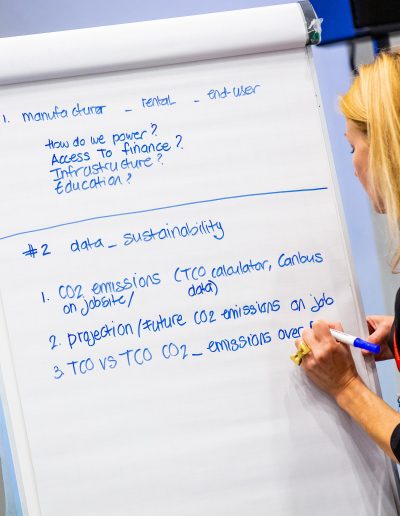 1. manufacturer - rental - end-user
How do we power?
Access to finance?
Infrastructure?
Education?
#2 data - sustainability
1. CO2 emissions (TCO calculator, Canbus
on jobsite/ data)
2. projection/future CO2 emissions on job
3. TCO vs TCO CO2 - emissions over